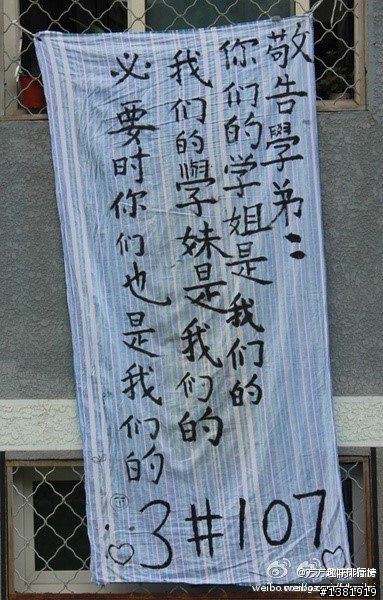 敬告學弟：
你们的学姐是我们的
我们的學妹是我们的
必要时你们也是我们的
3#107
#1381919